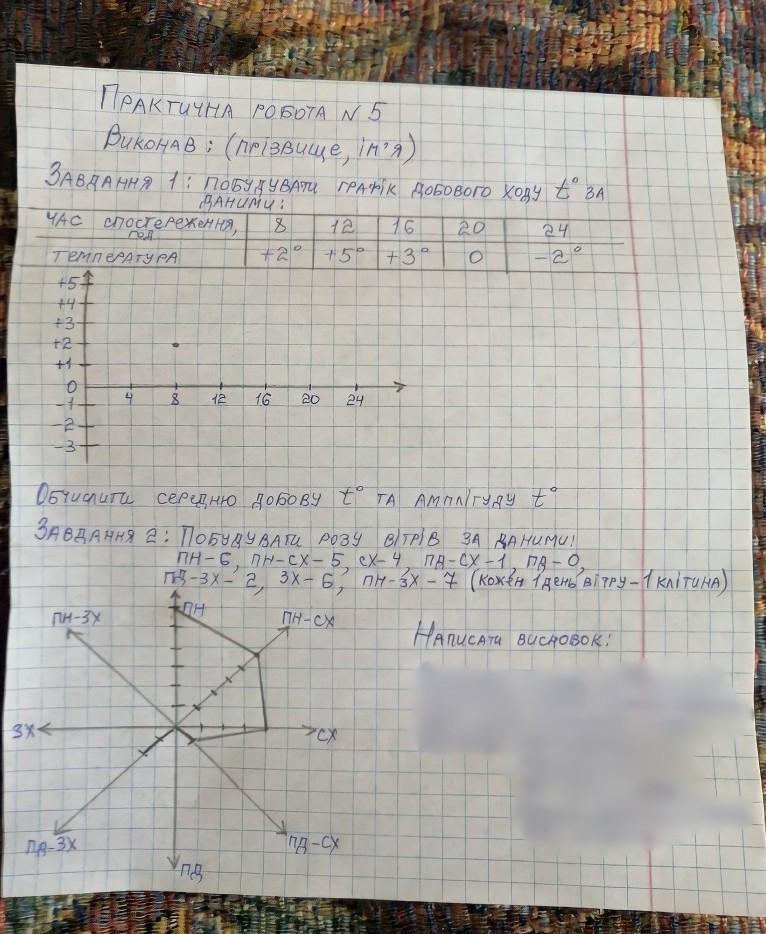 ПРАКТИЧНА РОБОТА N 5
ВИКОНАВ: (ПРІЗВИЩЕ, ІМ'Я)
ЗАВДАННЯ 1: ПОБУДУВАТИ ГРАФІК ДОБОВОГО ХОДУ t° ЗА
ДАНИМИ:
ЧАС СПОСТЕРЕЖЕННЯ, 8 12 16 20 24
ГОД
ТЕМПЕРАТУРА +2° +5° +3° 0 -2°
+5
+4
+3
+2
+1
0
4 8 12 16 20 24
-1
-2
-3
ОБЧИСЛИТИ СЕРЕДНЮ ДОБОВУ t° ТА АМПЛІТУДУ t°
ЗАВДАННЯ 2: ПОБУДУВАТИ РОЗУ ВІТРІВ ЗА ДАНИМИ:
ПН-6, ПН-СХ-5, СХ-4, ПД-СХ-1, ПД-0,
ПД-ЗХ-2, ЗХ-6, ПН-ЗХ-7 (КОЖЕН 1 ДЕНЬ ВІТРУ-1 КЛІТИНА)
ПН-ЗХ ПН ПН-СХ
НАПИСАТИ ВИСНОВОК:
ЗХ СХ
ПД-ЗХ ПД-СХ
ПД